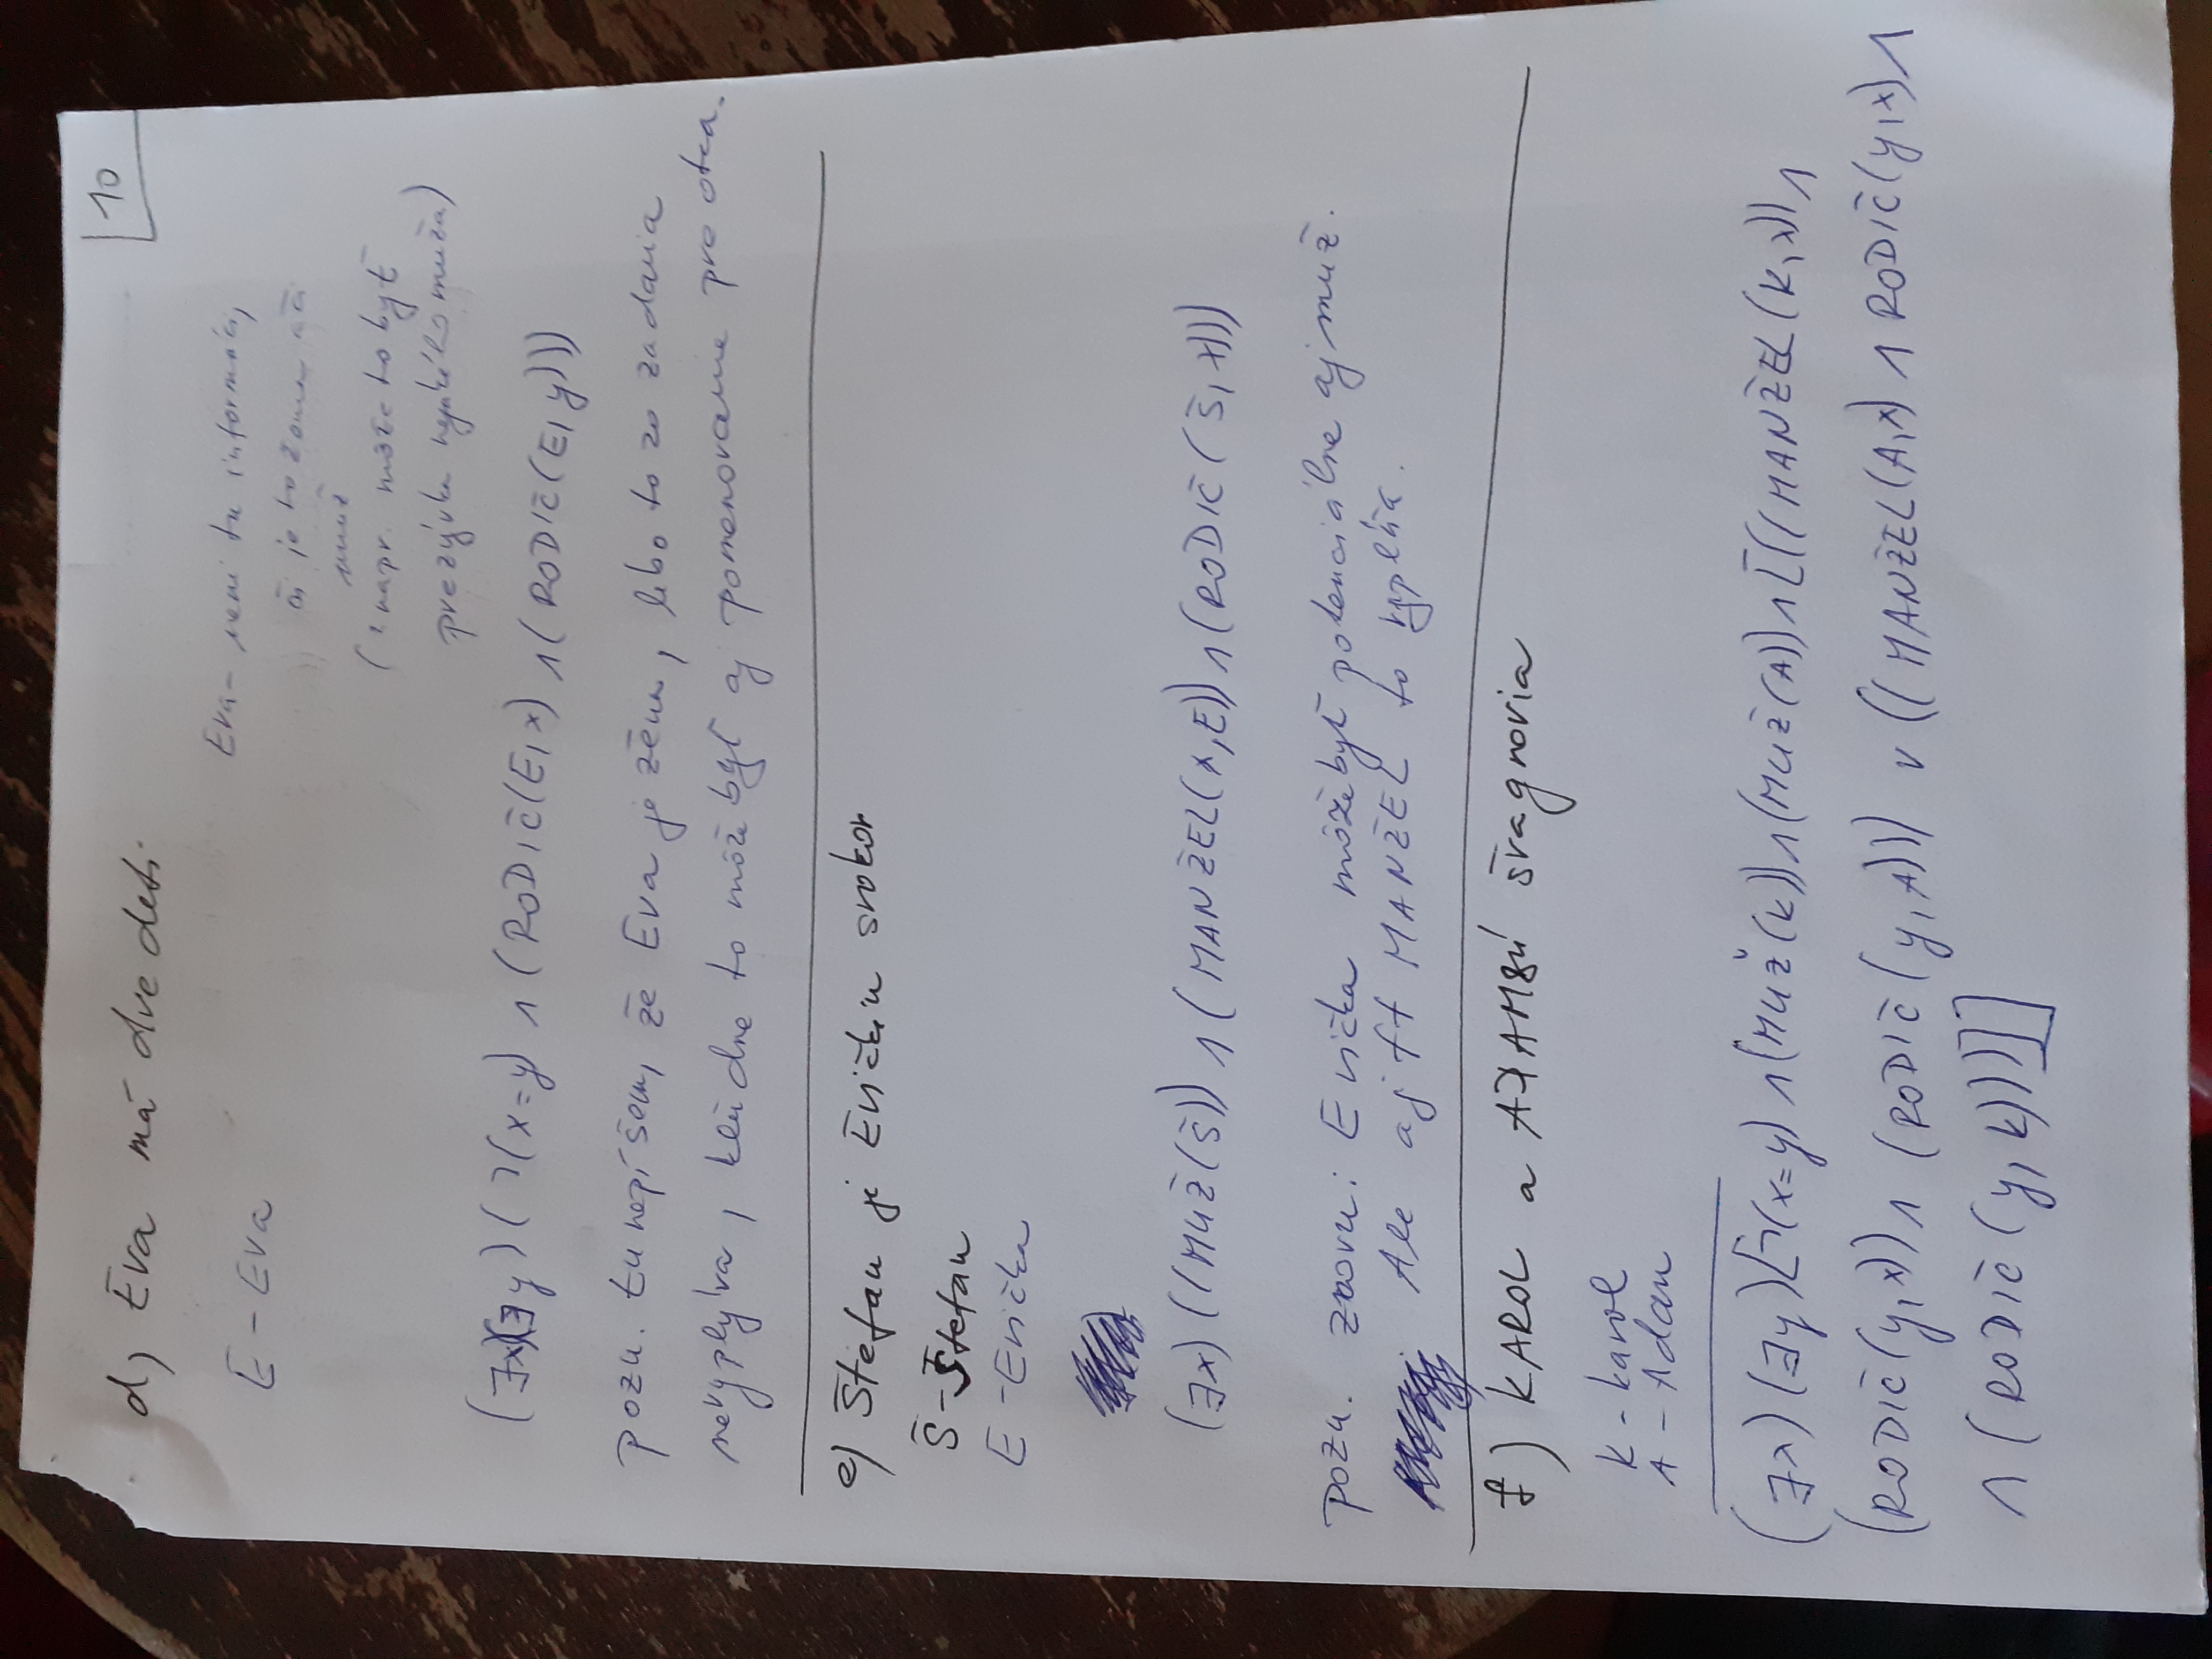 10
d) Eva má dve deti.
E - Eva
Eva - není tu informácia,
či je to žena či
muž
( napr. može to byť
prezývka nejakého muža)
(∃x)(∃y) (¬(x=y) ∧ (RODIČ(E,x) ∧ (RODIČ(E,y)))
pozn. tu nepíšem, že Eva je žena, lebo to zo zadania
nevyplýva, kľudne to môže byť aj pomenovanie pre otca.
e) Štefan je Eničkin svokor
Š - Štefan
E - Enička
(∃x) ((MUŽ(Š)) ∧ (MANŽEL(x,E)) ∧ (RODIČ(Š,x)))
pozn. znovu: Enička môže byť potenciálne aj muž.
Ale aj ft MANŽEL to
f) KAROL a ADAM sú švagrovia
K - Karol
A - Adam
(∃x)(∃y)[¬(x=y) ∧ (MUŽ(K)) ∧ (MUŽ(A)) ∧ [((MANŽEL(K,x)) ∧
(RODIČ(y,x)) ∧ (RODIČ(y,A))) ∨ ((MANŽEL(A,x) ∧ RODIČ(y,x) ∧
∧ (RODIČ(y,K)))]]